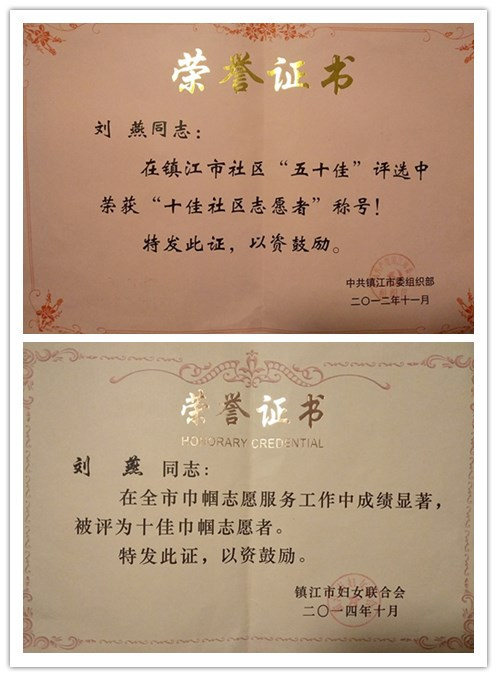 荣誉证书
刘 燕同志：
在镇江市社区“五十佳”评选中
荣获“十佳社区志愿者”称号！
特发此证，以资鼓励。
中共镇江市委组织部
二〇一二年十一月
荣誉证书
HONORARY CREDENTIAL
刘 燕 同志：
在全市巾帼志愿服务工作中成绩显著，
被评为十佳巾帼志愿者。
特发此证，以资鼓励。
镇江市妇女联合会
二〇一四年十月